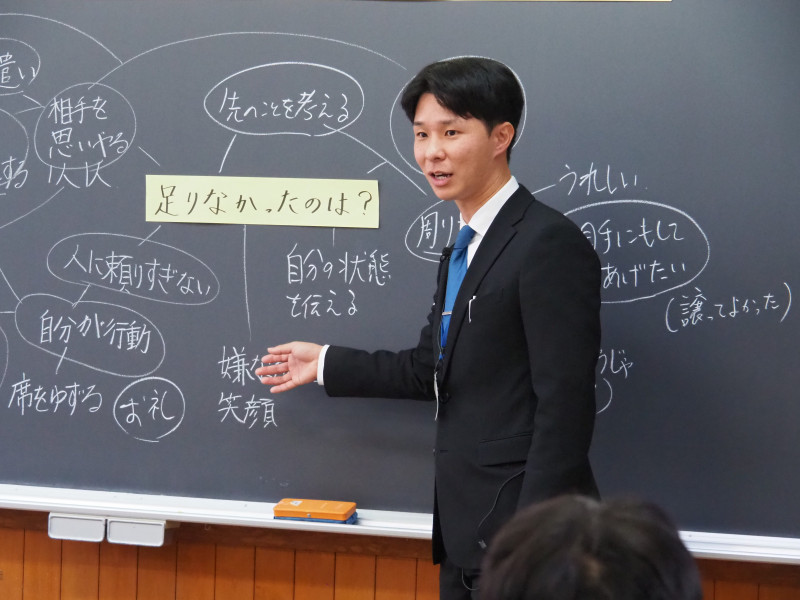 遣い
相手を
思いやる
先のことを考える
足りなかったのは?
うれしい
周り
手にもして
あげたい
(譲ってよかった)
人に頼りすぎない
自分の状態
を伝える
自分が行動
嫌な
笑顔
席をゆずる
お礼